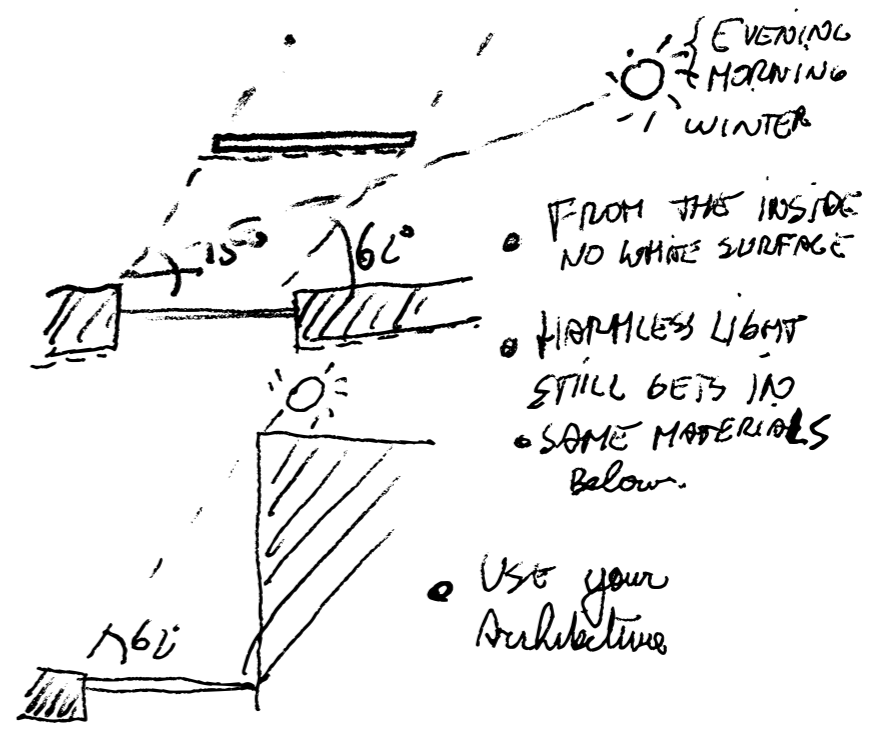 { EVENING
MORNING
WINTER
15°
62°
• FROM THE INSIDE
NO WHITE SURFACE
• HARMLESS LIGHT
STILL GETS IN
• SAME MATERIALS
Below.
62°
• USE your
Architecture